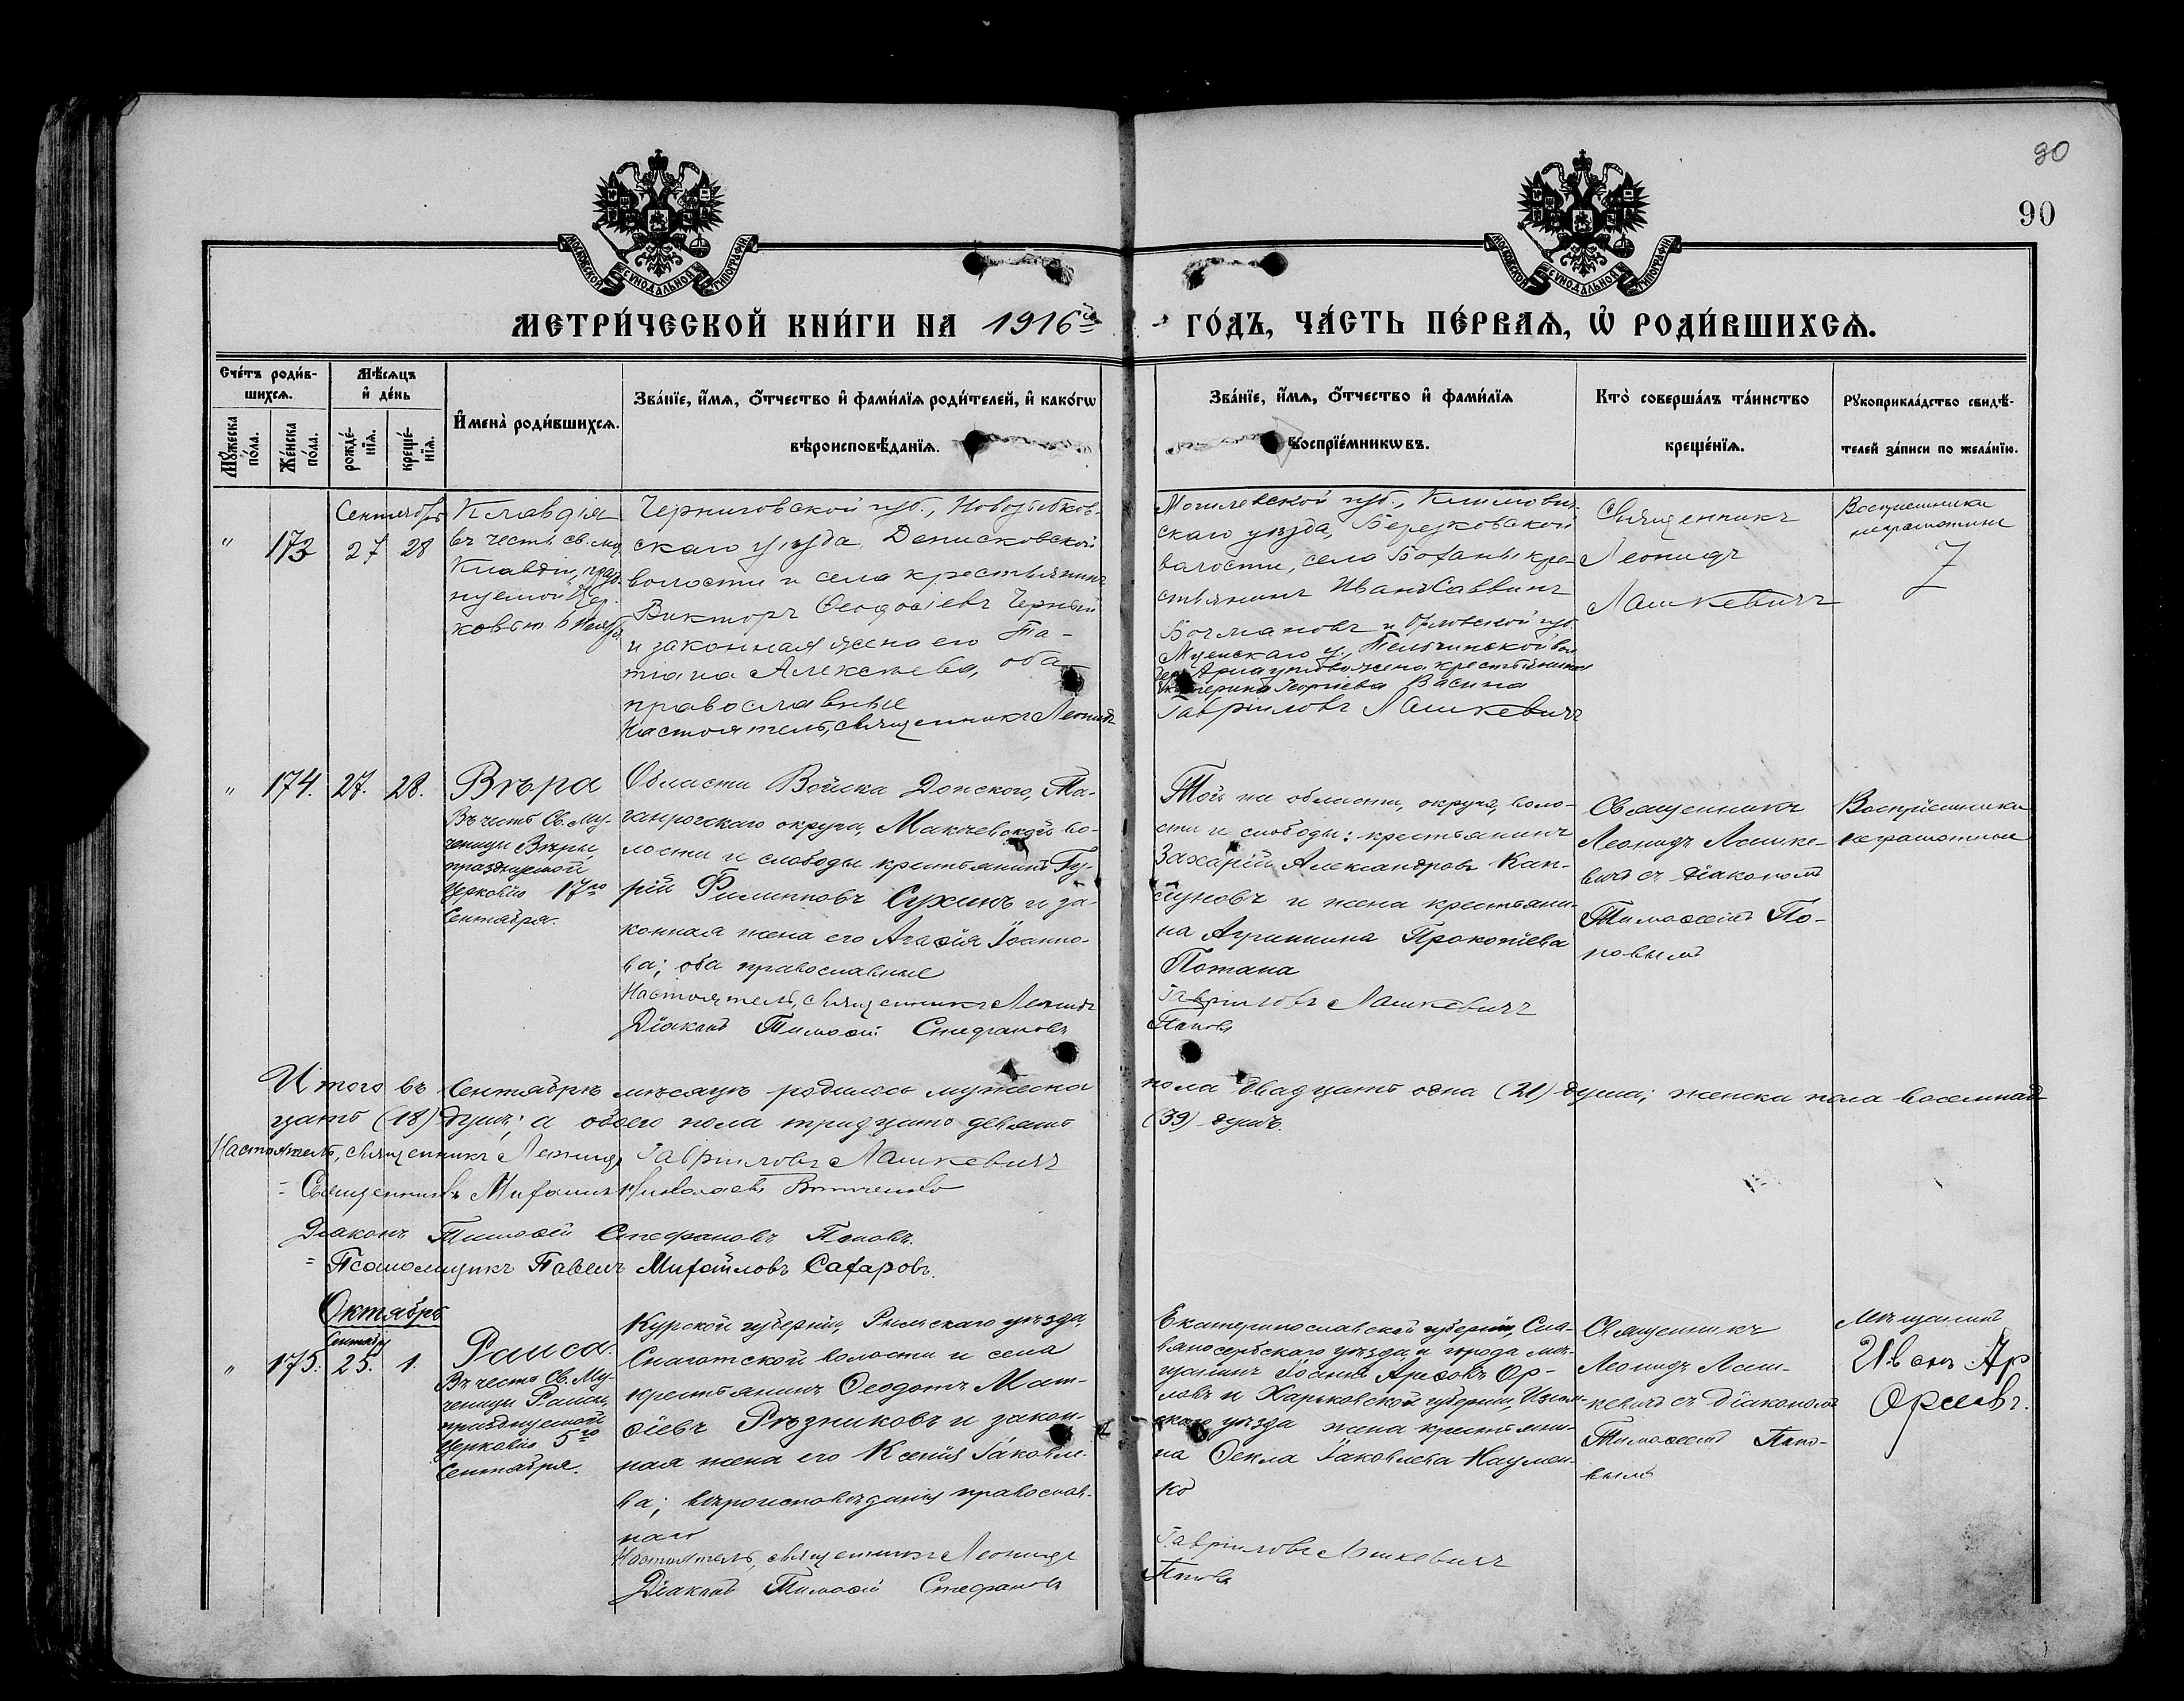 90
90
МОСКОВСКОЙ СѴНОДАЛЬНОЙ ТИПОГРАФІИ
МОСКОВСКОЙ СѴНОДАЛЬНОЙ ТИПОГРАФІИ
МЕТРИ́ЧЕСКОЙ КНИ́ГИ НА 1916й ГО́ДЪ, ЧА́СТЬ ПЕ́РВАѦ, Ѡ РОДИ́ВШИХСѦ.
Сче́тъ роди́в-
шихсѧ.
Мꙋ́жеска по́ла.
Же́нска по́ла.
Мѣ́сѧцъ
и҆ де́нь
рожде́-
нїѧ.
креще́-
нїѧ.
И҆мена̀ роди́вшихсѧ.
Зва́нїе, и҆́мѧ, ѻ҆́тчество и҆ фами́лїѧ роди́телей, и҆ како́гѡ
вѣроисповѣ́данїѧ.
Зва́нїе, и҆́мѧ, ѻ҆́тчество и҆ фами́лїѧ
воспрїе́мникѡвъ.
Кто̀ соверша́лъ та́инство
креще́нїѧ.
Рꙋкоприкла́дство свидѣ́-
телей за́писи по жела́нїю.
Сентябрь
" 173 27 28
Клавдія
въ честь св. му
Клавдіи, празд-
нуемой Цер-
ковью
Черниговской губ., Новозыбков-
скаго уѣзда, Денисковской
волости и села крестьянинъ
Викторъ Ѳеодосіевъ Черный
и законная жена его Та-
тіана Алексѣева, оба
православные
Настоятель, священникъ Леонидъ
Могилевской губ., Климович-
скаго уѣзда, Березковской
волости, села Боханы кре-
стьянинъ Иванъ Саввинъ
Бочмановъ и Орловской губ.
Мценскаго у., Тельчинской вол.
жена крестьянина
Екатерина Георгіева Васина
Гавріиловъ Лашкевичъ
Священникъ
Леонидъ
Лашкевичъ
Воспріемники
неграмотные
" 174. 27. 28.
Вѣра
Въ честь Св. Му-
ченицы Вѣры,
празднуемой
Церковію 17го
Сентября.
Области Войска Донского, Та-
ганрогскаго округа, Макѣевской во-
лости и слободы крестьянинъ Гу-
рій Филипповъ Сухинъ и за-
конная жена его Агаѳія Іоанно-
ва; оба православные
Настоятель, священникъ Леонидъ
Діаконъ Тимоѳей Стефановъ
Той же области, округа, воло-
сти и слободы: крестьянинъ
Захарій Александровъ Кап-
суновъ и жена крестьяни-
на Агриппина Прокопіева
Потана
Гавріиловъ Лашкевичъ
Поповъ
Священникъ
Леонидъ Лашке-
вичъ съ діакономъ
Тимоѳеемъ По-
повымъ
Воспріемники
неграмотные
Итого въ Сентябрѣ мѣсяцѣ родилось мужеска пола двадцать одна (21) душа; женска пола восемнад-
цать (18) душъ; а обоего пола тридцать девять (39) душъ.
Настоятель, священникъ Леонидъ Гавріиловъ Лашкевичъ
= Священникъ Михаилъ Николаевъ
Діаконъ Тимоѳей Стефановъ Поповъ.
= Псаломщикъ Павелъ Михайловъ Сахаровъ.
Октябрь
Сентября
" 175. 25. 1.
Раиса.
Въ честь Св. Му-
ченицы Раисы,
празднуемой
Церковію 5го
Сентября.
Курской губерніи, Рыльскаго уѣзда,
Снагостской волости и села
крестьянинъ Ѳеодотъ Мат-
ѳіевъ Рѣзниковъ и закон-
ная жена его Ксенія Іаковле-
ва; вѣроисповѣданія православ-
наго
Настоятель, священникъ Леонидъ
Діаконъ Тимоѳей Стефановъ
Екатеринославской губерніи, Сла-
вяносербскаго уѣзда и города мѣ-
щанинъ Іоаннъ Ареѳовъ Ор-
ловъ и Харьковской губерніи, Изюм-
скаго уѣзда жена крестьяни-
на Ѳекла Іаковлева Наумен-
ко
Гавріиловъ Лашкевичъ
Поповъ
Священникъ
Леонидъ Лаш-
кевичъ съ діакономъ
Тимоѳеемъ Попо-
вымъ
Мѣщанинъ
Иванъ Ар